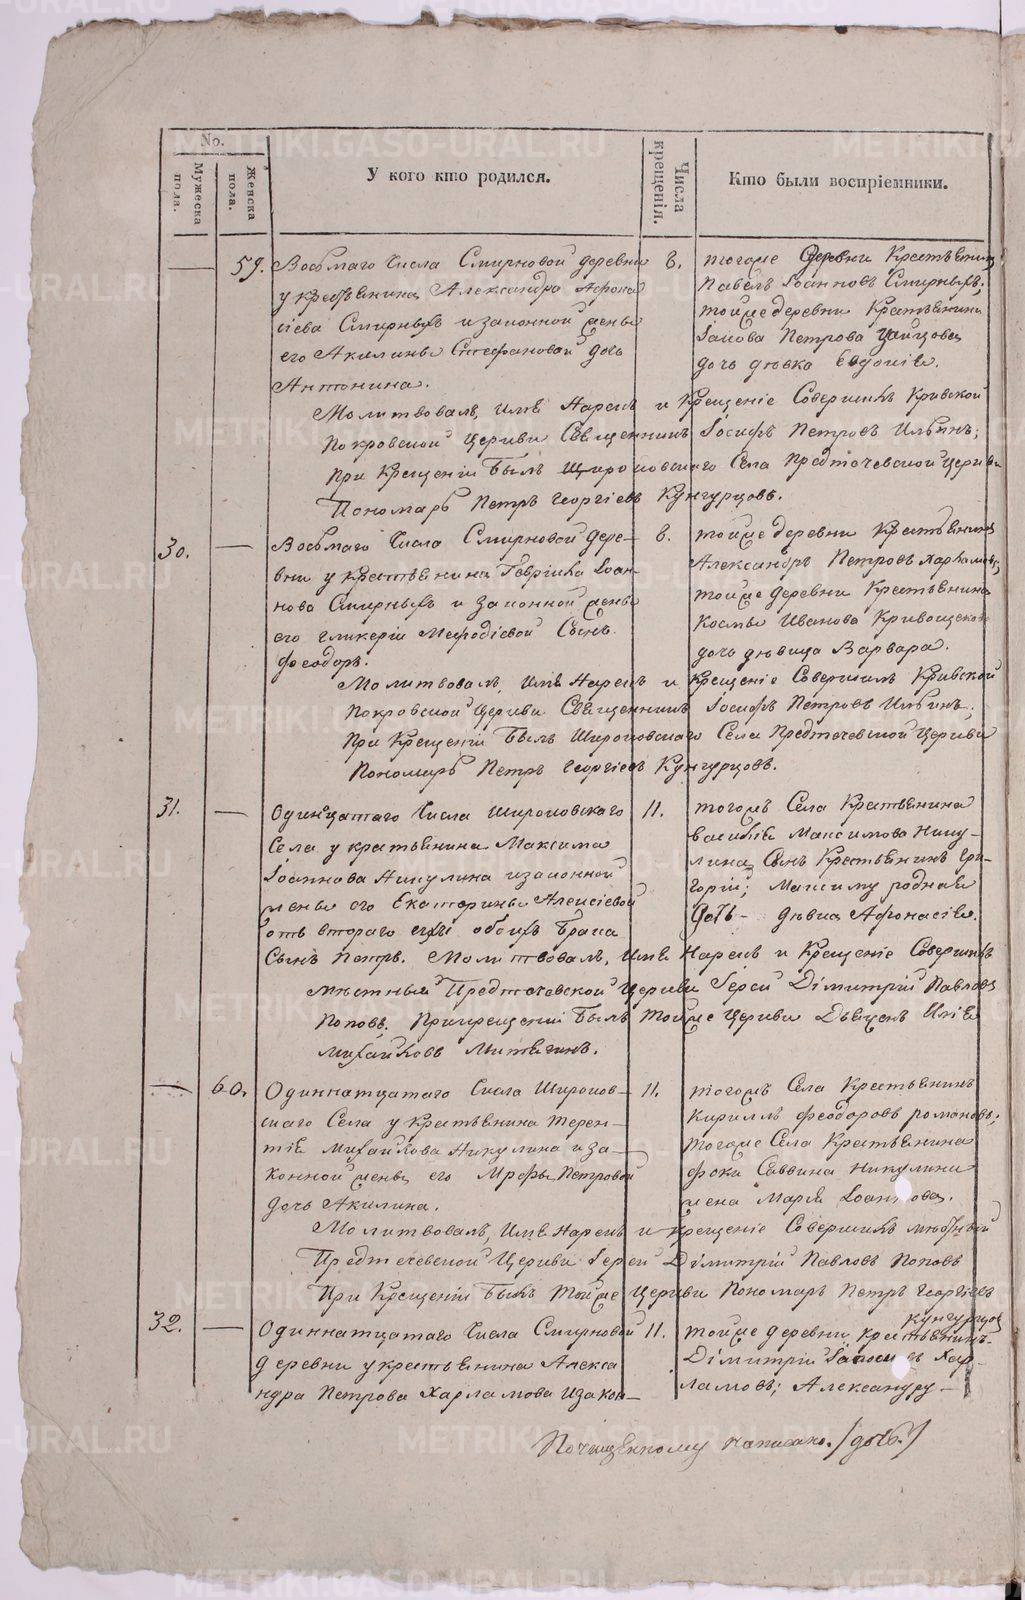 No.
Мужеска пола.
Женска пола.
У кого кто родился.
Числа крещенія.
Кто были воспріемники.
59. Восьмаго Числа Смирновой деревни
у крестьянина Александра Афона
сіева Смирныхъ и законной жены
его Акилины Стефановой дочь
Антонина.
8. тогоже деревни Крестьянинъ
Павелъ Іоанновъ Смирныхъ;
тойже деревни Крестьянина
Іакова Петрова
дочь дѣвка Евдокія.
Молитвовалъ, имя Нарекъ и Крещеніе Совершилъ Кривской
Покровской Церкви Священникъ Іосифъ Петровъ Ильинъ;
при Крещеніи Былъ Широковскаго Села Предтечевской Церкви
Пономарь Петръ Георгіевъ Кунгурцовъ.
30. Восьмаго Числа Смирновой дере-
вни у крестьянина Георгія Іоан-
нова Смирныхъ и законной жены
его Гликеріи Меѳодіевой Сынъ
Феодоръ.
8. тойже деревни Крестьянинъ
Александръ Петровъ Харламовъ;
тойже деревни Крестьянина
Космы Иванова
дочь дѣвица Варвара.
Молитвовалъ, имя Нарекъ и Крещеніе Совершилъ Кривской
Покровской Церкви Священникъ Іосифъ Петровъ Ильинъ;
при Крещеніи Былъ Широковскаго Села Предтечевской Церкви
Пономарь Петръ Георгіевъ Кунгурцовъ.
31. Одинцатаго Числа Широковскаго
Села у крестьянина Максима
Іоаннова Никулина и законной
жены его Екатерины Алексіевой
отъ втораго обоихъ Брака
Сынъ Петръ.
11. тогожъ Села Крестьянина
Василія Максимова Нику-
лина Сынъ Крестьянинъ Гри-
горій; Максиму родная
Дочь - дѣвица Афонасія.
Молитвовалъ, имя Нарекъ и Крещеніе Совершилъ
мѣстный Предтечевской Церкви Іерей Димитрій Павловъ
Поповъ. При крещеніи Былъ тойже Церкви Дьячекъ Илія
Михайловъ
60. Одиннатцатаго Числа Широков-
скаго Села у Крестьянина Терен-
тія Михайлова Никулина и за-
конной жены его Петровой
дочь Акилина.
11. тогожъ Села Крестьянинъ
Кириллъ Феодоровъ Романовъ;
тогоже Села Крестьянина
Фоки Саввина Никулина
жена Марія Іоаннова.
Молитвовалъ, Имя Нарекъ и Крещеніе Совершилъ мѣстный
Предтечевской Церкви Іерей Димитрій Павловъ Поповъ
При Крещеніи Былъ тойже Церкви Пономарь Петръ Георгіевъ
Кунгурцовъ
32. Одиннатцатаго Числа Смирновой
деревни у крестьянина Алекса
ндра Петрова Харламова и закон-
11. тойже деревни крестьянинъ
Димитрій Хар-
ламовъ; Александру -
По чищенному написано. /дочь./